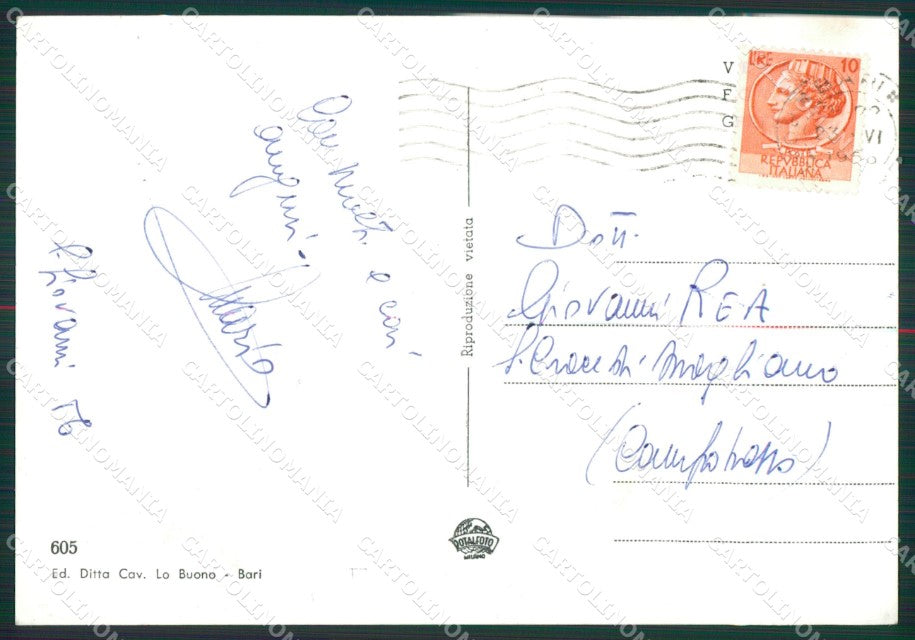 LIRE 10
V
F
G
VI
REPVBBLICA
ITALIANA
Con molti e cari
auguri.
Mario
S. Giovanni 76
Riproduzione vietata
Dott.
Giovanni REA
S. Croce di Magliano
(Campobasso)
ROTALFOTO
MILANO
605
Ed. Ditta Cav. Lo Buono - Bari
CARTOLINOMANIA